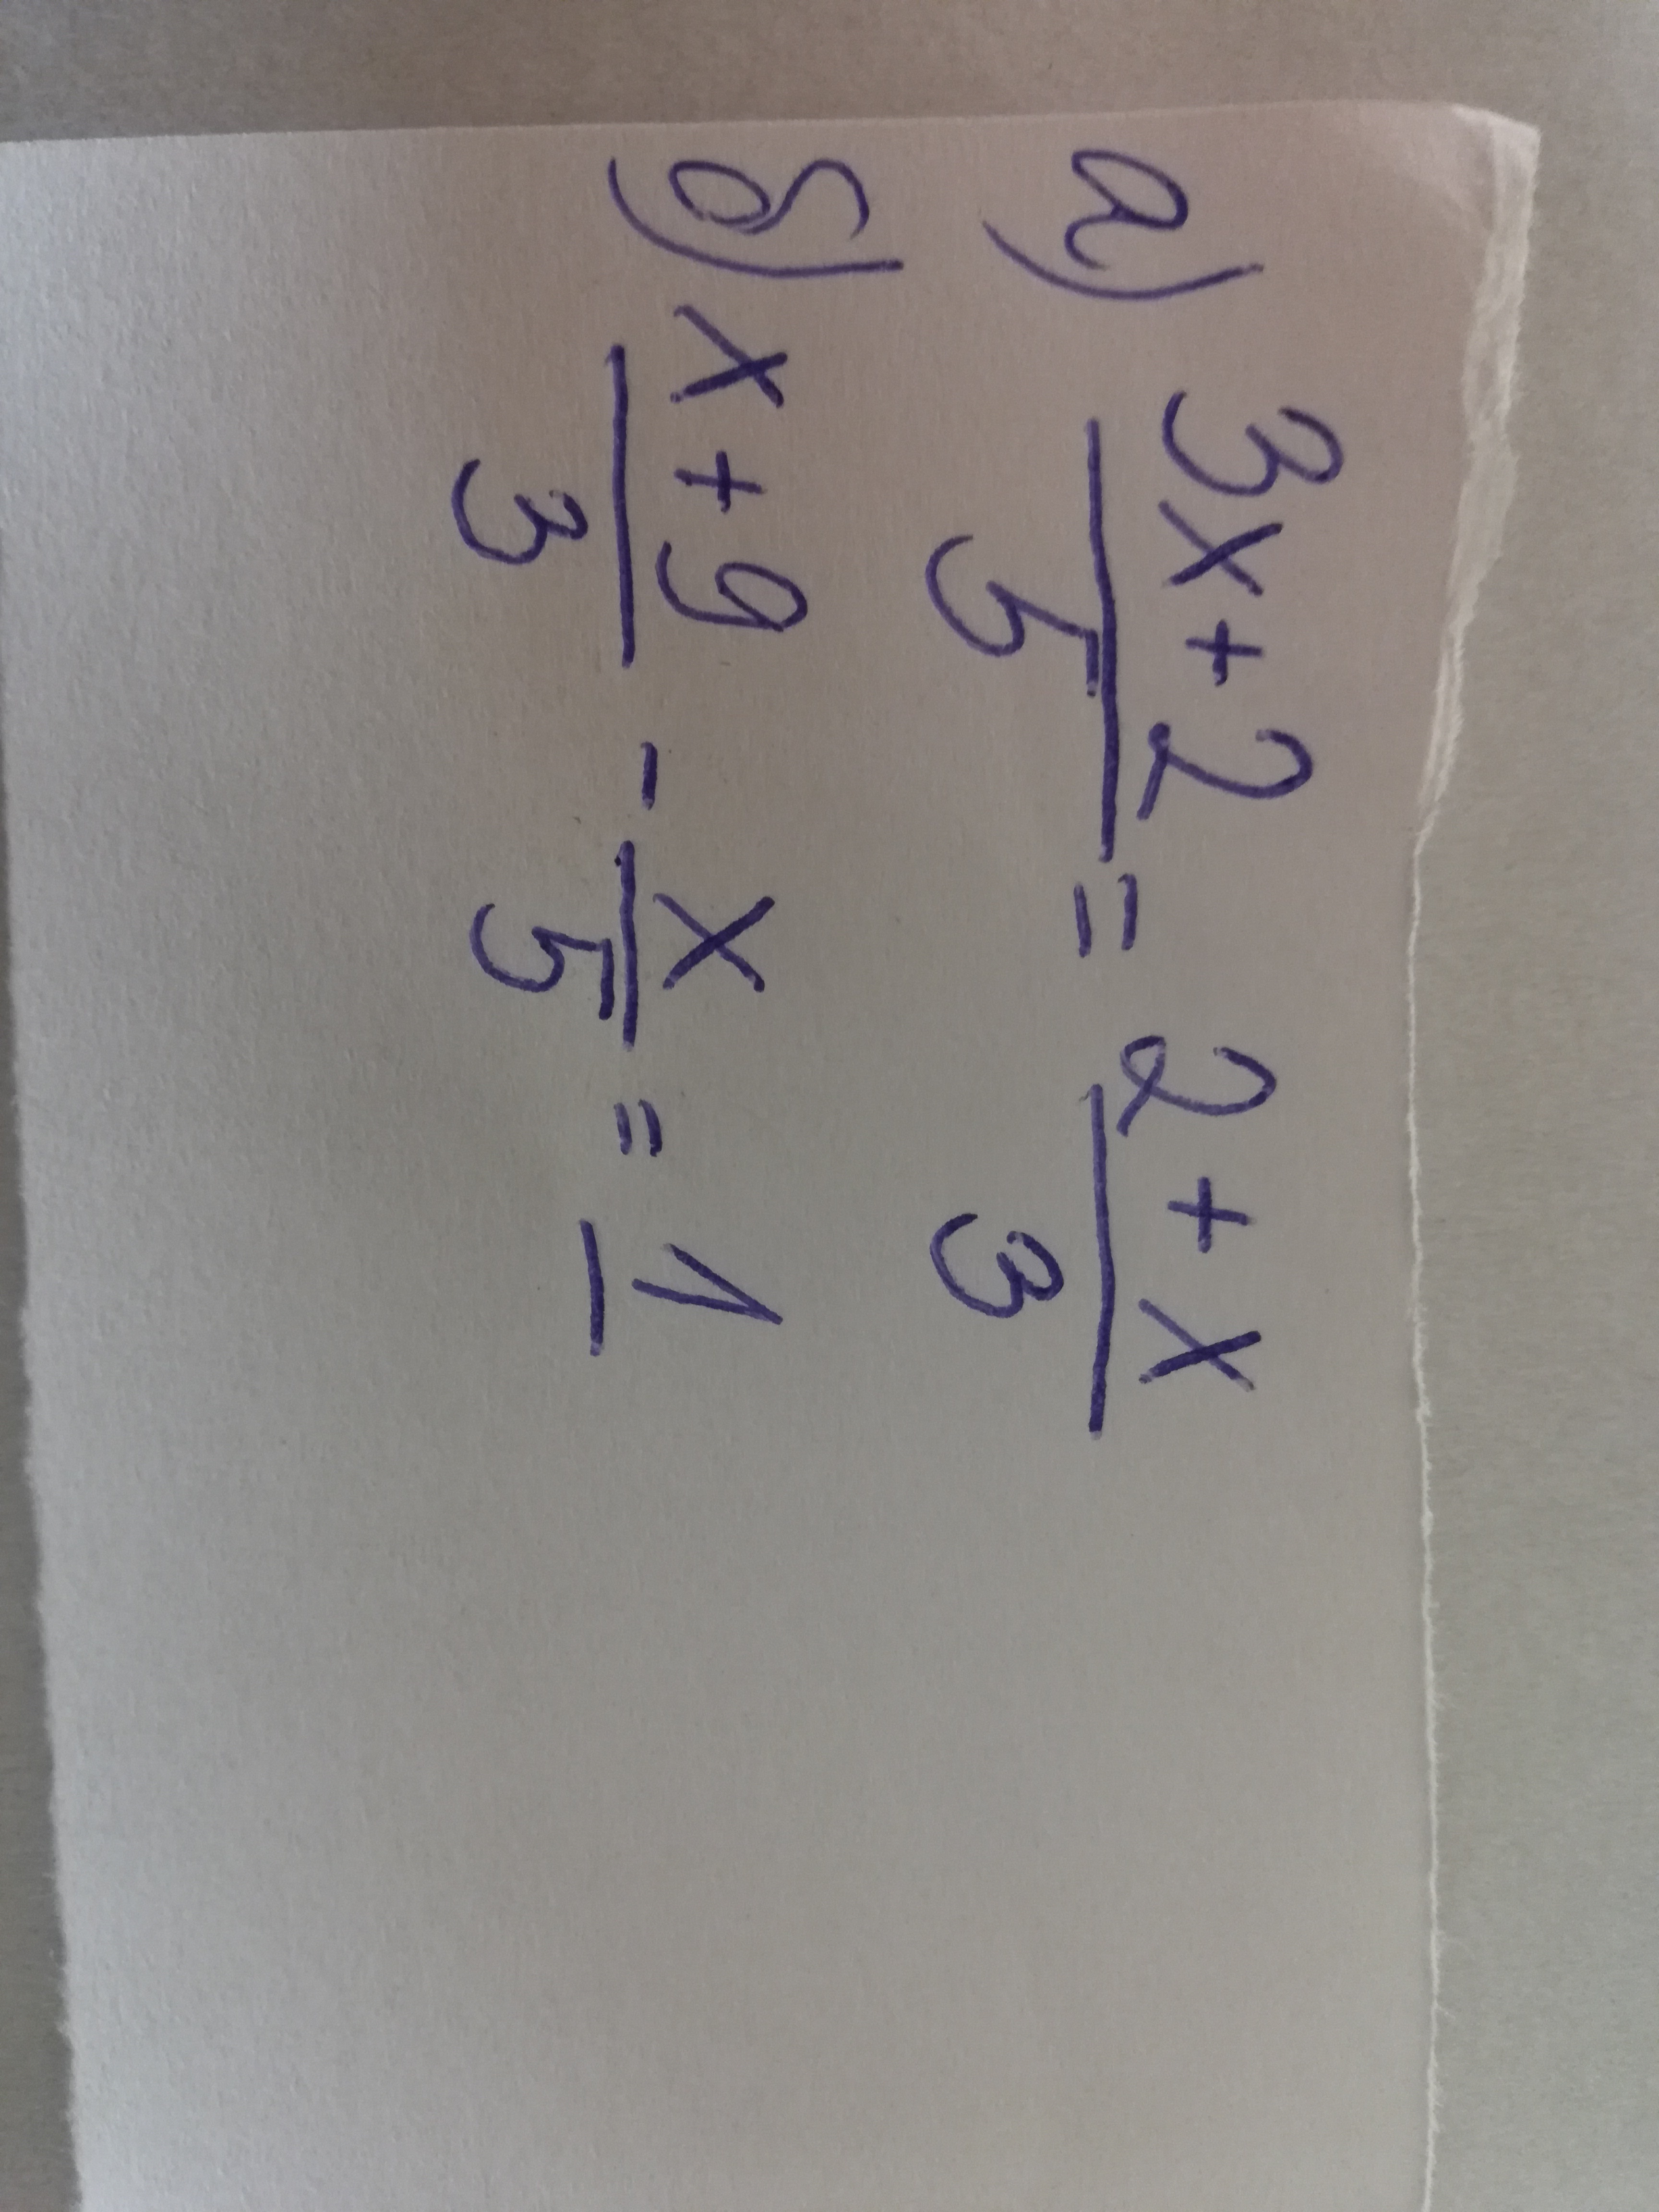 а) (3x+2)/5 = (2+x)/3
б) (x+9)/3 - x/5 = 1